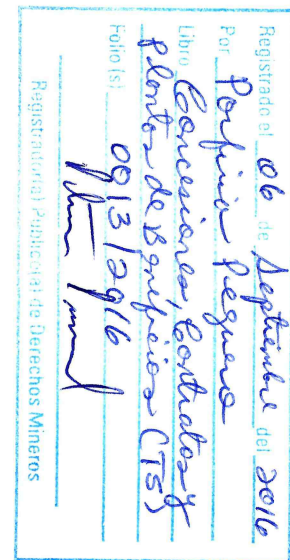 Registrado el 06 de Septiembre del 2016
Por Porfiria Peguero
Libro Concesiones, Contratos y
plantas de Beneficios (TS)
Folio (s) 0013/2916
Registrador(a) Público(a) de Derechos Mineros